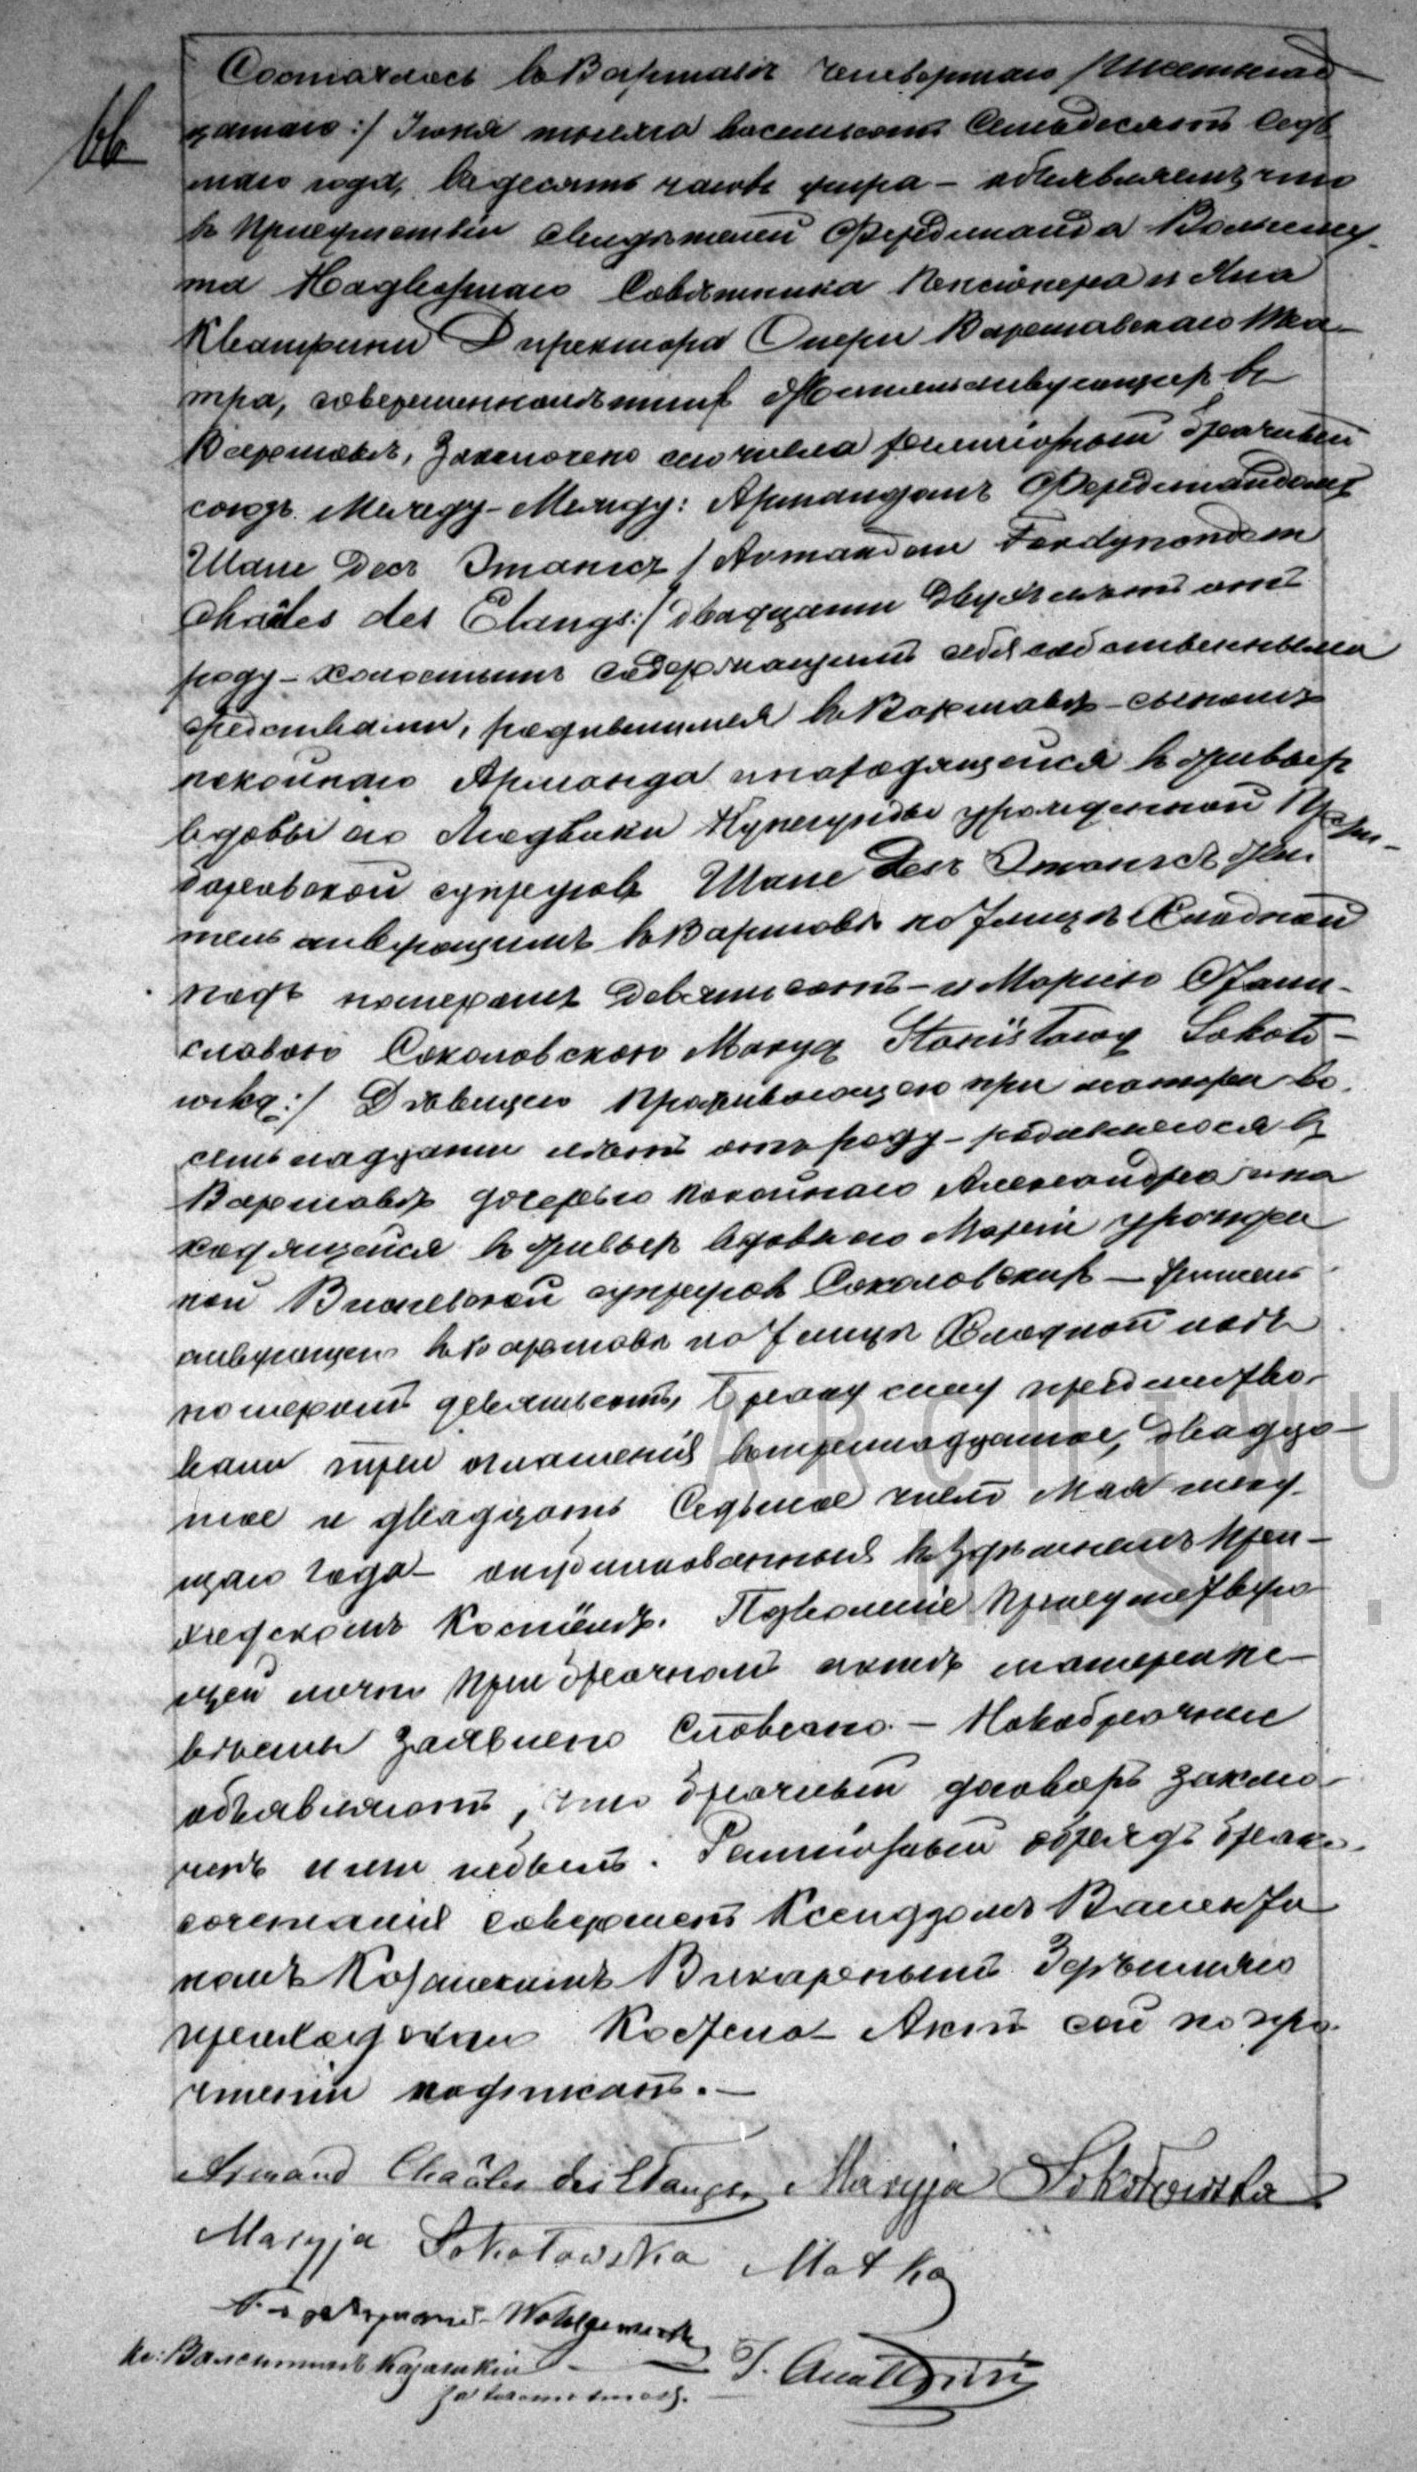 66
Состоялось въ Варшавѣ четвертаго /шестнад
цатаго:/ Іюня тысяча восемьсотъ семьдесятъ седь
маго года, въ десять часовъ утра – объявляемъ, что
въ присутствіи свидѣтелей Фердинанда Вольгему
та Надворнаго Совѣтника Пенсіонера и Яна
Кватрини Директора Оперы Варшавскаго Теа-
тра, совершеннолѣтнихъ Жительствующихъ въ
Варшавѣ, заключенъ сего числа религіозный брачный
союзъ Между-Между: Армандомъ Фердинандомъ
Шале Десъ Этангсъ /Armandem Ferdynandem
Châles des Etangs:/ двадцати двухъ лѣтъ отъ
роду – холостымъ содержащимъ себя собственными
средствами, родившимся въ Варшавѣ – сыномъ
покойнаго Арманда и находящейся въ живыхъ
вдовы его Людвики Кунегунды урожденной
супруговъ Шале Десъ Этангсъ жи
тельствующимъ въ Варшавѣ по улицѣ Хлодной
подъ номеромъ девятьсотъ – и Маріею Стани-
славою Соколовскою Maryą Stanisławą Sokoło-
wską:/ Дѣвицею проживающею при матери во-
семьнадцати лѣтъ отъ роду – родившеюся въ
Варшавѣ дочерью покойнаго Александра и на
ходящейся въ живыхъ вдовы его Маріи урожден
ной супруговъ Соколовскихъ – житель
ствующею въ Варшавѣ по улицѣ Хлодной подъ
номеромъ девятьсотъ, Браку сему предшество-
вали три оглашенія въ тринадцатое, двадца-
тое и двадцать седьмое число Мая теку-
щаго года – опубликованныя въ здѣшнемъ При-
ходскомъ Костёлѣ. Позволеніе присутствую
щей лично при брачномъ актѣ матери не-
вѣсты заявлено словесно. – Новобрачные
объявляютъ, что брачный договоръ заклю-
ченъ ими небылъ. Религіозный обрядъ брако-
сочетанія совершенъ Ксендзомъ Валенты
номъ Викарнымъ Здѣшняго
приходскаго Костела – Актъ сей по про-
чтеніи подписанъ. –
Armand Châles des Etangs, Maryja Sokołowska
Maryja Sokołowska Matka
Wohlgemuth
Кс: Валентинъ
J. Quattrini